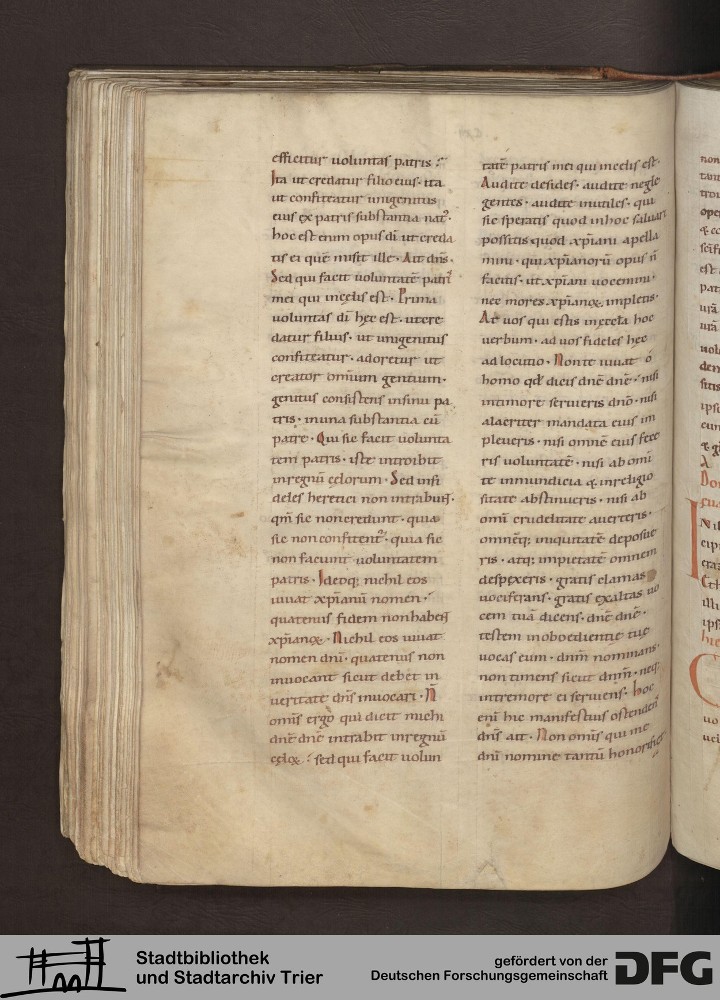 efficitur uoluntas patris :
Ita ut credatur filio eius · ita
ut confiteatur unigenitus
eius ex patris substantia nat᾽ ·
hoc est enim opus dī ut creda
tis ei quē misit ille · Ait dn̄s ·
Sed qui facit uoluntatē patris
mei qui in cęlis est · Prima
uoluntas dī hęc est · ut cre
datur filius · ut unigenitus
confiteatur · adoretur ut
creator omnium gentium ·
genitus consistens in sinu pa
tris · in una substantia cū
patre · Qui sic facit uolunta
tem patris · iste introibit
in regnū cęlorum · Sed infi
deles heretici non intrabunt ·
qm̄ sic non credunt · quia
sic non confitent᾽ · quia sic
non faciunt uoluntatem
patris · Ideoq; nichil eos
iuuat xp̄ianū nomen ·
quatenus fidem non habent
xp̄ianoꝝ · Nichil eos iuuat
nomen dn̄i · quatenus non
inuocant sicut debet in
ueritate dn̄s inuocari · N̄
omīs ergo qui dicit michi
dn̄e dn̄e intrabit in regnū
cęloꝝ : sed qui facit uolun
tatē patris mei qui in cęlis est ·
Audite desides · audite negle
gentes · audite inutiles · qui
sic speratis quod in hoc saluari
possitis quod xp̄iani apella
mini · qui xp̄ianorū opus n̄
facitis · ut xp̄iani uocemini ·
nec mores xp̄ianoꝝ impletis ·
At uos qui estis in ęccła hoc
uerbum · ad uos fideles hęc
adlocutio · Non te iuuat ó
homo qđ dicis dn̄e dn̄e · nisi
in timore seruieris dn̄o · nisi
alacriter mandata eius im
pleueris · nisi omnē eius fece
ris uoluntatē · nisi ab omi
te inmundicia & inreligio
sitate abstinueris · nisi ab
omī crudelitate auerteris ·
omnēq; iniquitatē deposue
ris · atq; impietatē omnem
despexeris · gratis clamas
uociferans · gratis exaltas uo
cem tuā dicens · dn̄e dn̄e ·
testem inobedientie tuę
uocas eum · dn̄m nominans ·
non timens sicut dn̄m · neq;
in tremore ei seruiens · hoc
enī hic manifestius ostendens
dn̄s ait · Non omīs qui me
dn̄i nomine tantū honorificat
Stadtbibliothek
und Stadtarchiv Trier
gefördert von der
Deutschen Forschungsgemeinschaft
DFG